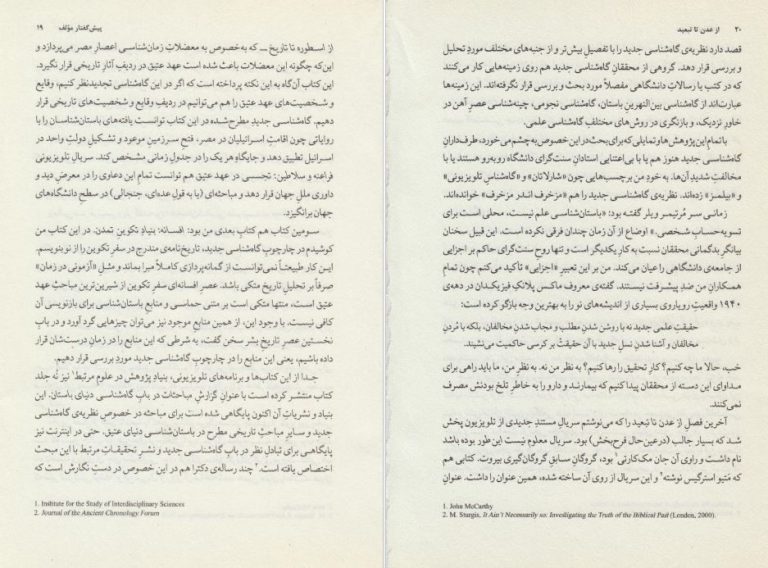 پیش‌گفتار مؤلف ۱۹
از اسطوره تا تاریخ ـــ که به‌خصوص به معضلاتِ زمان‌شناسیِ اعصارِ مصر می‌پردازد و
این‌که چگونه این معضلات باعث شده است عهد عتیق در ردیفِ آثار تاریخی قرار نگیرد.
این کتاب آن‌گاه به این نکته پرداخته است که اگر در این گاه‌شناسی تجدیدنظر کنیم، وقایع
و شخصیت‌های عهد عتیق را هم می‌توانیم در ردیفِ وقایع و شخصیت‌های تاریخی قرار
دهیم. گاه‌شناسیِ جدیدِ مطرح‌شده در این کتاب توانست یافته‌های باستان‌شناسان را با
روایاتی چون اقامتِ اسرائیلیان در مصر، فتح سرزمینِ موعود و تشکیلِ دولتِ واحد در
اسرائیل تطبیق دهد و جایگاهِ هر یک را در جدولِ زمانی مشخص کند. سریال تلویزیونیِ
فراعنه و سلاطین: تجسسی در عهد عتیق هم توانست تمام این دعاوی را در معرضِ دید و
داوریِ مللِ جهان قرار دهد و مباحثه‌ای (یا به قولِ عده‌ای، جنجالی) در سطحِ دانشگاه‌های
جهان برانگیزد.
سومین کتاب هم کتابِ بعدیِ من بود: افسانه: بنیادِ تکوینِ تمدن. در این کتاب من
کوشیدم در چارچوبِ گاه‌شناسیِ جدید، تاریخ‌نامه‌ی مندرج در سِفرِ تکوین را از نو بنویسم.
این کار طبیعتاً نمی‌توانست از گمانه‌پردازی کاملاً مبرا بماند و مثلِ «آزمونی در زمان»
صرفاً بر تحلیلِ تاریخ متکی باشد. عصر افسانه‌ایِ سِفرِ تکوین از شیرین‌ترین مباحثِ عهد
عتیق است، منتها متکی است بر متنی حماسی و منابعِ باستان‌شناسی برای بازنویسی آن
کافی نیست. با وجود این، از همین منابع موجود نیز می‌توان چیزهایی گرد آورد و در بابِ
نخستین عصرِ تاریخِ بشر سخن گفت، به شرطی که این منابع را در زمانِ درست‌شان قرار
داده باشیم، یعنی این منابع را در چارچوبِ گاه‌شناسیِ جدید موردِ بررسی قرار دهیم.
جدا از این کتاب‌ها و برنامه‌های تلویزیونی، بنیادِ پژوهش در علومِ مرتبط۱ نیز نُه جلد
کتاب منتشر کرده است با عنوانِ گزارشِ مباحثات در بابِ گاه‌شناسیِ دنیای باستان. این
بنیاد و نشریاتِ آن اکنون پایگاهی شده است برای مباحثه در خصوصِ نظریه‌ی گاه‌شناسیِ
جدید و سایرِ مباحثِ تاریخیِ مطرح در باستان‌شناسیِ دنیای عتیق. حتی در اینترنت نیز
پایگاهی برای تبادلِ نظر در بابِ گاه‌شناسیِ جدید و نشرِ تحقیقاتِ مرتبط با این مبحث
اختصاص یافته است.۲ چند رساله‌ی دکترا هم در این خصوص در دستِ نگارش است که
1. Institute for the Study of Interdisciplinary Sciences
2. Journal of the Ancient Chronology Forum
۲۰ از عدن تا تبعید
قصد دارد نظریه‌ی گاه‌شناسی جدید را با تفصیلِ بیش‌تر و از جنبه‌های مختلف موردِ تحلیل
و بررسی قرار دهد. گروهی از محققانِ گاه‌شناسی جدید هم روی زمینه‌هایی کار می‌کنند
که در کتب یا رسالاتِ دانشگاهی مفصلاً موردِ بحث و بررسی قرار نگرفته‌اند. این زمینه‌ها
عبارت‌اند از گاه‌شناسیِ بین‌النهرینِ باستان، گاه‌شناسیِ نجومی، چینه‌شناسیِ عصرِ آهن در
خاورِ نزدیک، و بازنگری در روش‌های مختلفِ گاه‌شناسیِ علمی.
با تمام این پژوهش‌ها و تمایلی که برای بحث در این خصوص به چشم می‌خورد، طرف‌دارانِ
گاه‌شناسی جدید هنوز هم یا با بی‌اعتناییِ استادانِ سنت‌گرای دانشگاه روبه‌رو هستند یا با
مخالفتِ شدیدِ آن‌ها. به خودِ من برچسب‌هایی چون «شارلاتان» و «گاه‌شناسِ تلویزیونی»
و «بیلمز» زده‌اند. نظریه‌ی گاه‌شناسی جدید را هم «مزخرف اندر مزخرف» خوانده‌اند.
زمانی سر مُرتیمر ویلر گفته بود: «باستان‌شناسی علم نیست، محلی است برای
تسویه‌حسابِ شخصی.» اوضاع از آن زمان چندان فرقی نکرده است. این قبیل سخنان
بیانگرِ بدگمانیِ محققان نسبت به کارِ یکدیگر است و تنها روحِ سنت‌گرای حاکم بر اجزایی
از جامعه‌ی دانشگاهی را عیان می‌کند. من بر این تعبیرِ «اجزایی» تأکید می‌کنم چون تمام
همکارانِ من ضدِ پیشرفت نیستند. گفته‌ی معروفِ ماکس پلانکِ فیزیک‌دان در دهه‌ی
۱۹۴۰ واقعیتِ رویاروییِ بسیاری از اندیشه‌های نو را به بهترین وجه بازگو کرده است:
حقیقتِ علمیِ جدید نه با روشن شدنِ مطلب و مجاب شدنِ مخالفان، بلکه با مُردنِ
مخالفان و آشنا شدنِ نسلِ جدید با آن حقیقت بر کرسیِ حاکمیت می‌نشیند.
خب، حالا ما چه کنیم؟ کارِ تحقیق را رها کنیم؟ به نظر من نه. به نظرِ من، ما باید راهی برای
مداوای این دسته از محققان پیدا کنیم که بیمارند و دارو را به خاطرِ تلخ بودنش مصرف
نمی‌کنند.
آخرین فصلِ از عدن تا تبعید را که می‌نوشتم سریالِ مستندِ جدیدی از تلویزیون پخش
شد که بسیار جالب (درعین‌حال فرح‌بخش) بود. سریال معلوم نیست این طور بوده باشد
نام داشت و راویِ آن جان مک‌کارتی۱ بود، گروگانِ سابقِ گروگان‌گیریِ بیروت. کتابی هم
که مَتیو استرگیس نوشته۲ و این سریال از روی آن ساخته شده، همین عنوان را داشت. عنوانِ
1. John McCarthy
2. M. Sturgis, It Ain't Necessarily so: Investigating the Truth of the Biblical Past (London, 2000).